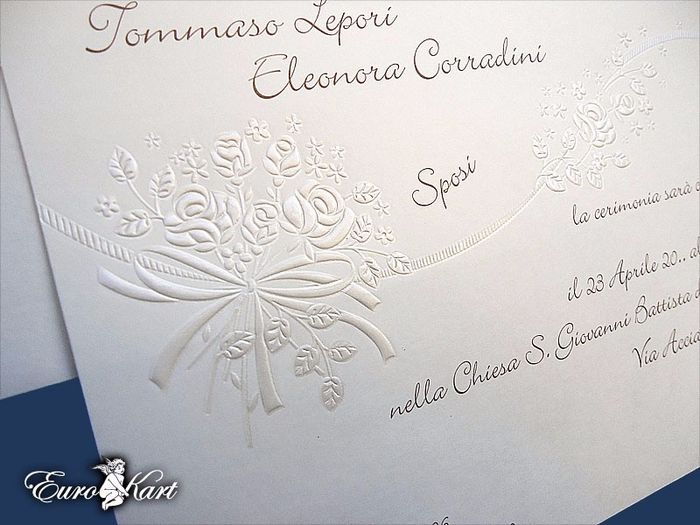 Tommaso Lepori
Eleonora Corradini
Sposi
la cerimonia sarà
il 23 Aprile 20..
nella Chiesa S. Giovanni Battista
Via
Euro Kart